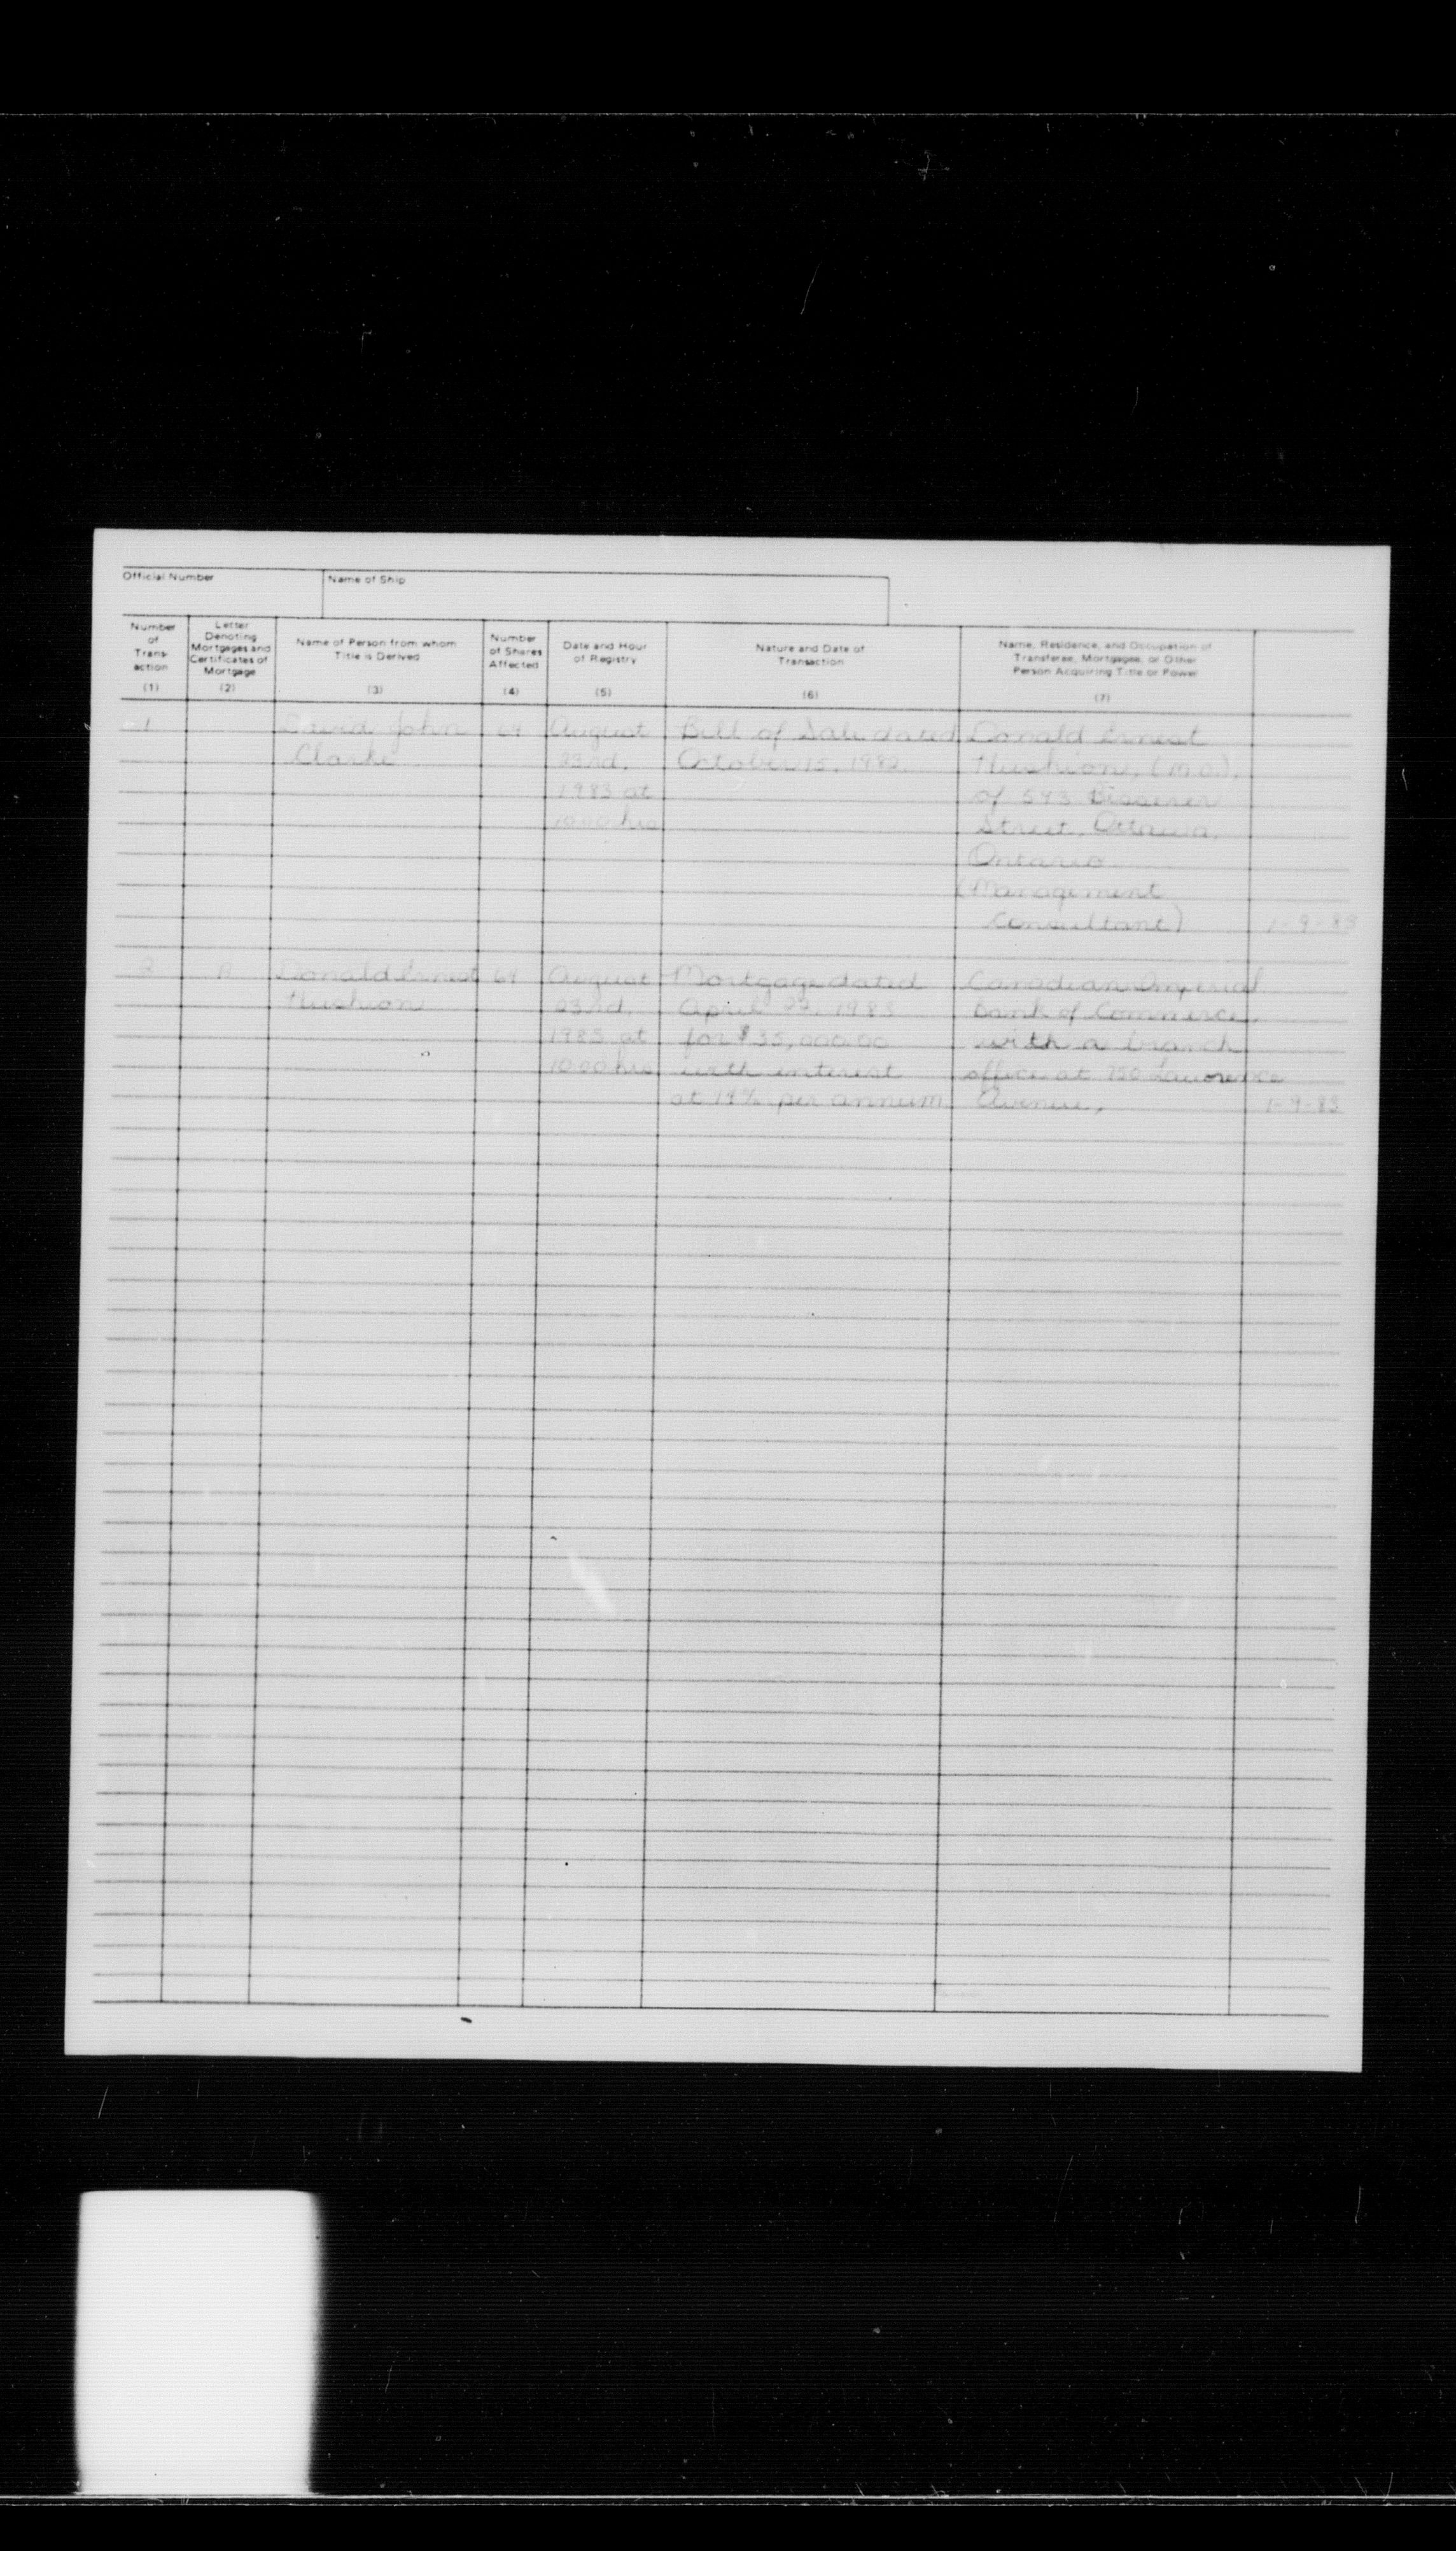 Official Number
Name of Ship
Number of Trans- action (1)
Letter Denoting Mortgages and Certificates of Mortgage (2)
Name of Person from whom Title is Derived (3)
Number of Shares Affected (4)
Date and Hour of Registry (5)
Nature and Date of Transaction (6)
Name, Residence, and Occupation of Transferee, Mortgagee, or Other Person Acquiring Title or Power (7)
1 David John 64 August Bill of Sale dated Donald Ernest
Clarke 23rd, October 15, 1982. Hushion, (M.O.),
1983 at of 593 Besserer
10:00 hrs Street, Ottawa,
Ontario
(Management
Consultant) 1-9-83
2 A Donald Ernest 64 August Mortgage dated Canadian Imperial
Hushion 23rd, April 22, 1983 Bank of Commerce,
1983 at for $35,000.00 with a branch
10:00 hrs with interest office at 750 Lawrence
at 14% per annum Avenue, 1-9-83